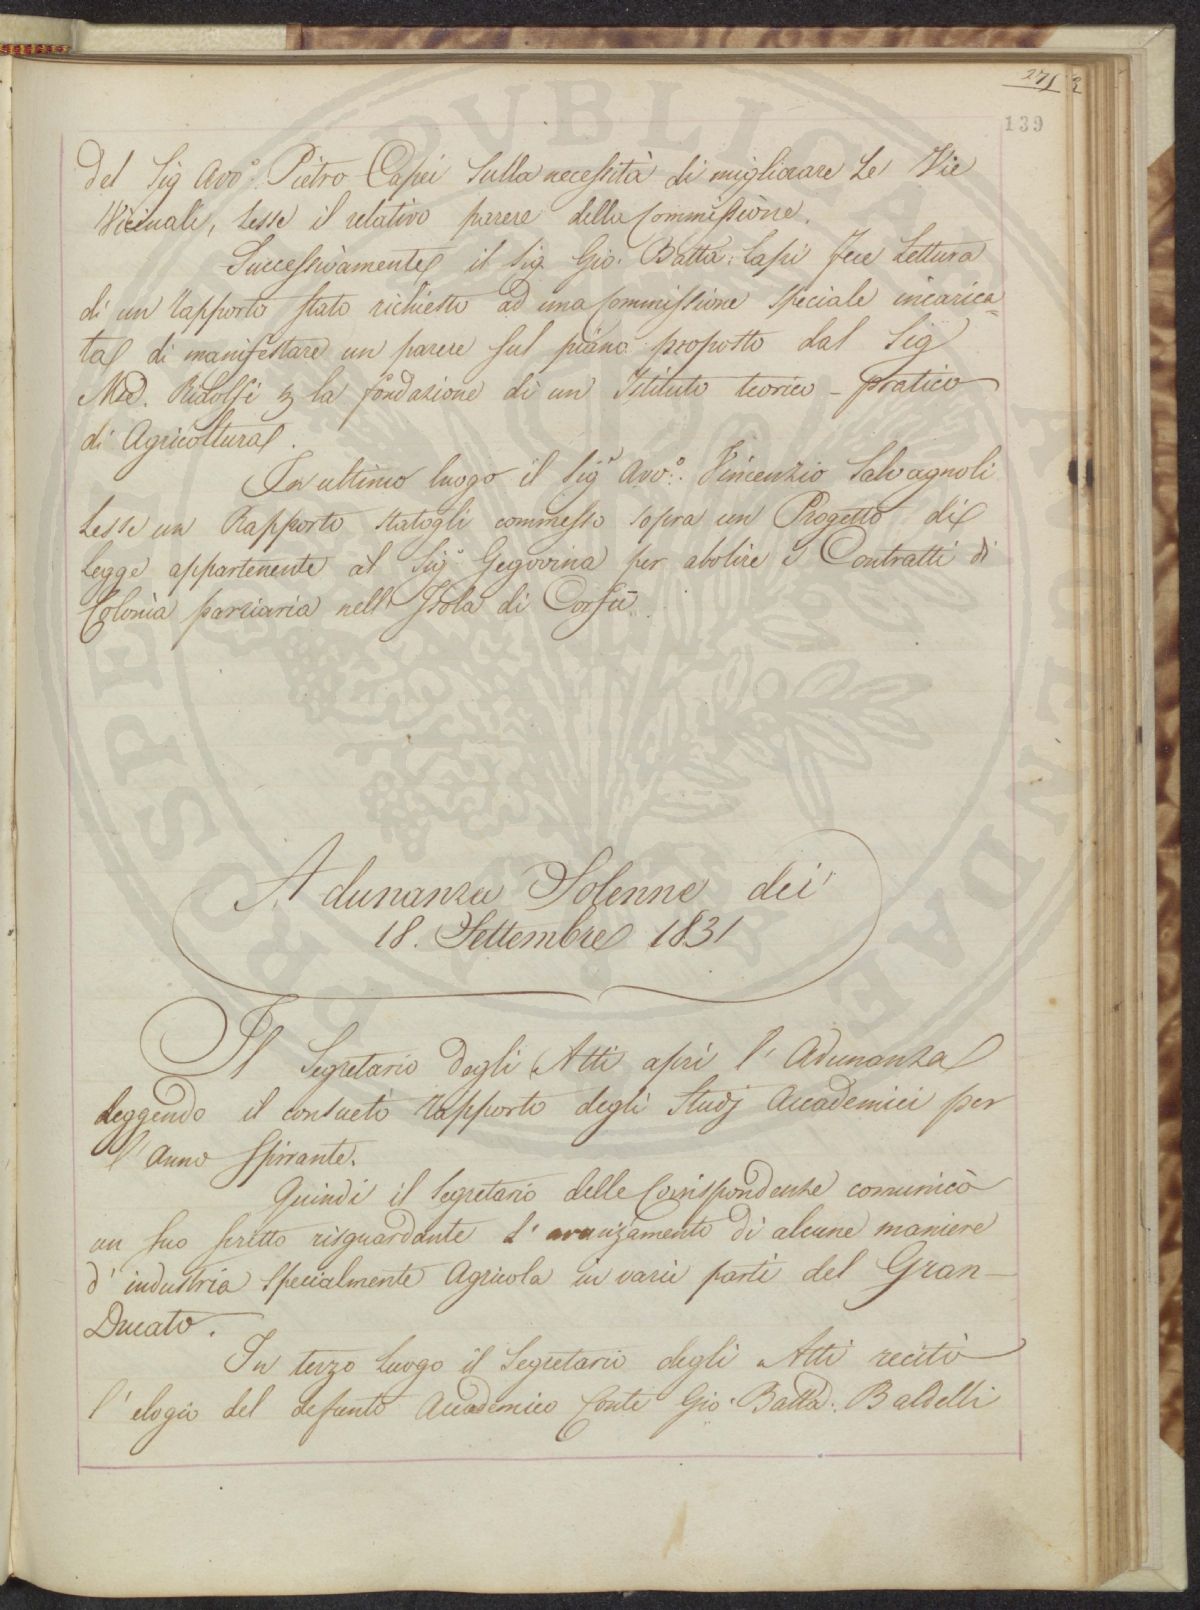 271
139
del Sig Avv.º Pietro Capei Sulla necessità di migliorare Le Vie
Vicinali, Lesse il relativo parere della Commissione.
Successivamente il Sig. Gio. Batta: Lapi Fece Lettura
di un Rapporto stato richiesto ad una Commissione speciale incarica=
ta di manifestare un parere sul piano proposto dal Sig
Ridolfi la fondazione di un Istituto teorico - pratico
di Agricoltura.
In ultimo luogo il Sig.r Avv.º Vincenzio Salvagnoli
Lesse un Rapporto statogli commesso sopra un Progetto di
Legge appartenente al Sig.r per abolire i Contratti di
Colonia parziaria nell'Isola di Corfù.
Adunanza Solenne dei
18. Settembre 1831
Il Segretario degli Atti aprì l'Adunanza
Leggendo il consueto rapporto degli Studj Accademici per
l'anno spirante.
Quindi il Segretario delle Corrispondenze comunicò
un suo scritto risguardante l'avanzamento di alcune maniere
d'industria specialmente Agricola in varie parti del Gran-
Ducato.
In terzo Luogo il Segretario degli Atti recitò
l'elogio del defunto Accademico Conte Gio. Batta. Baldelli